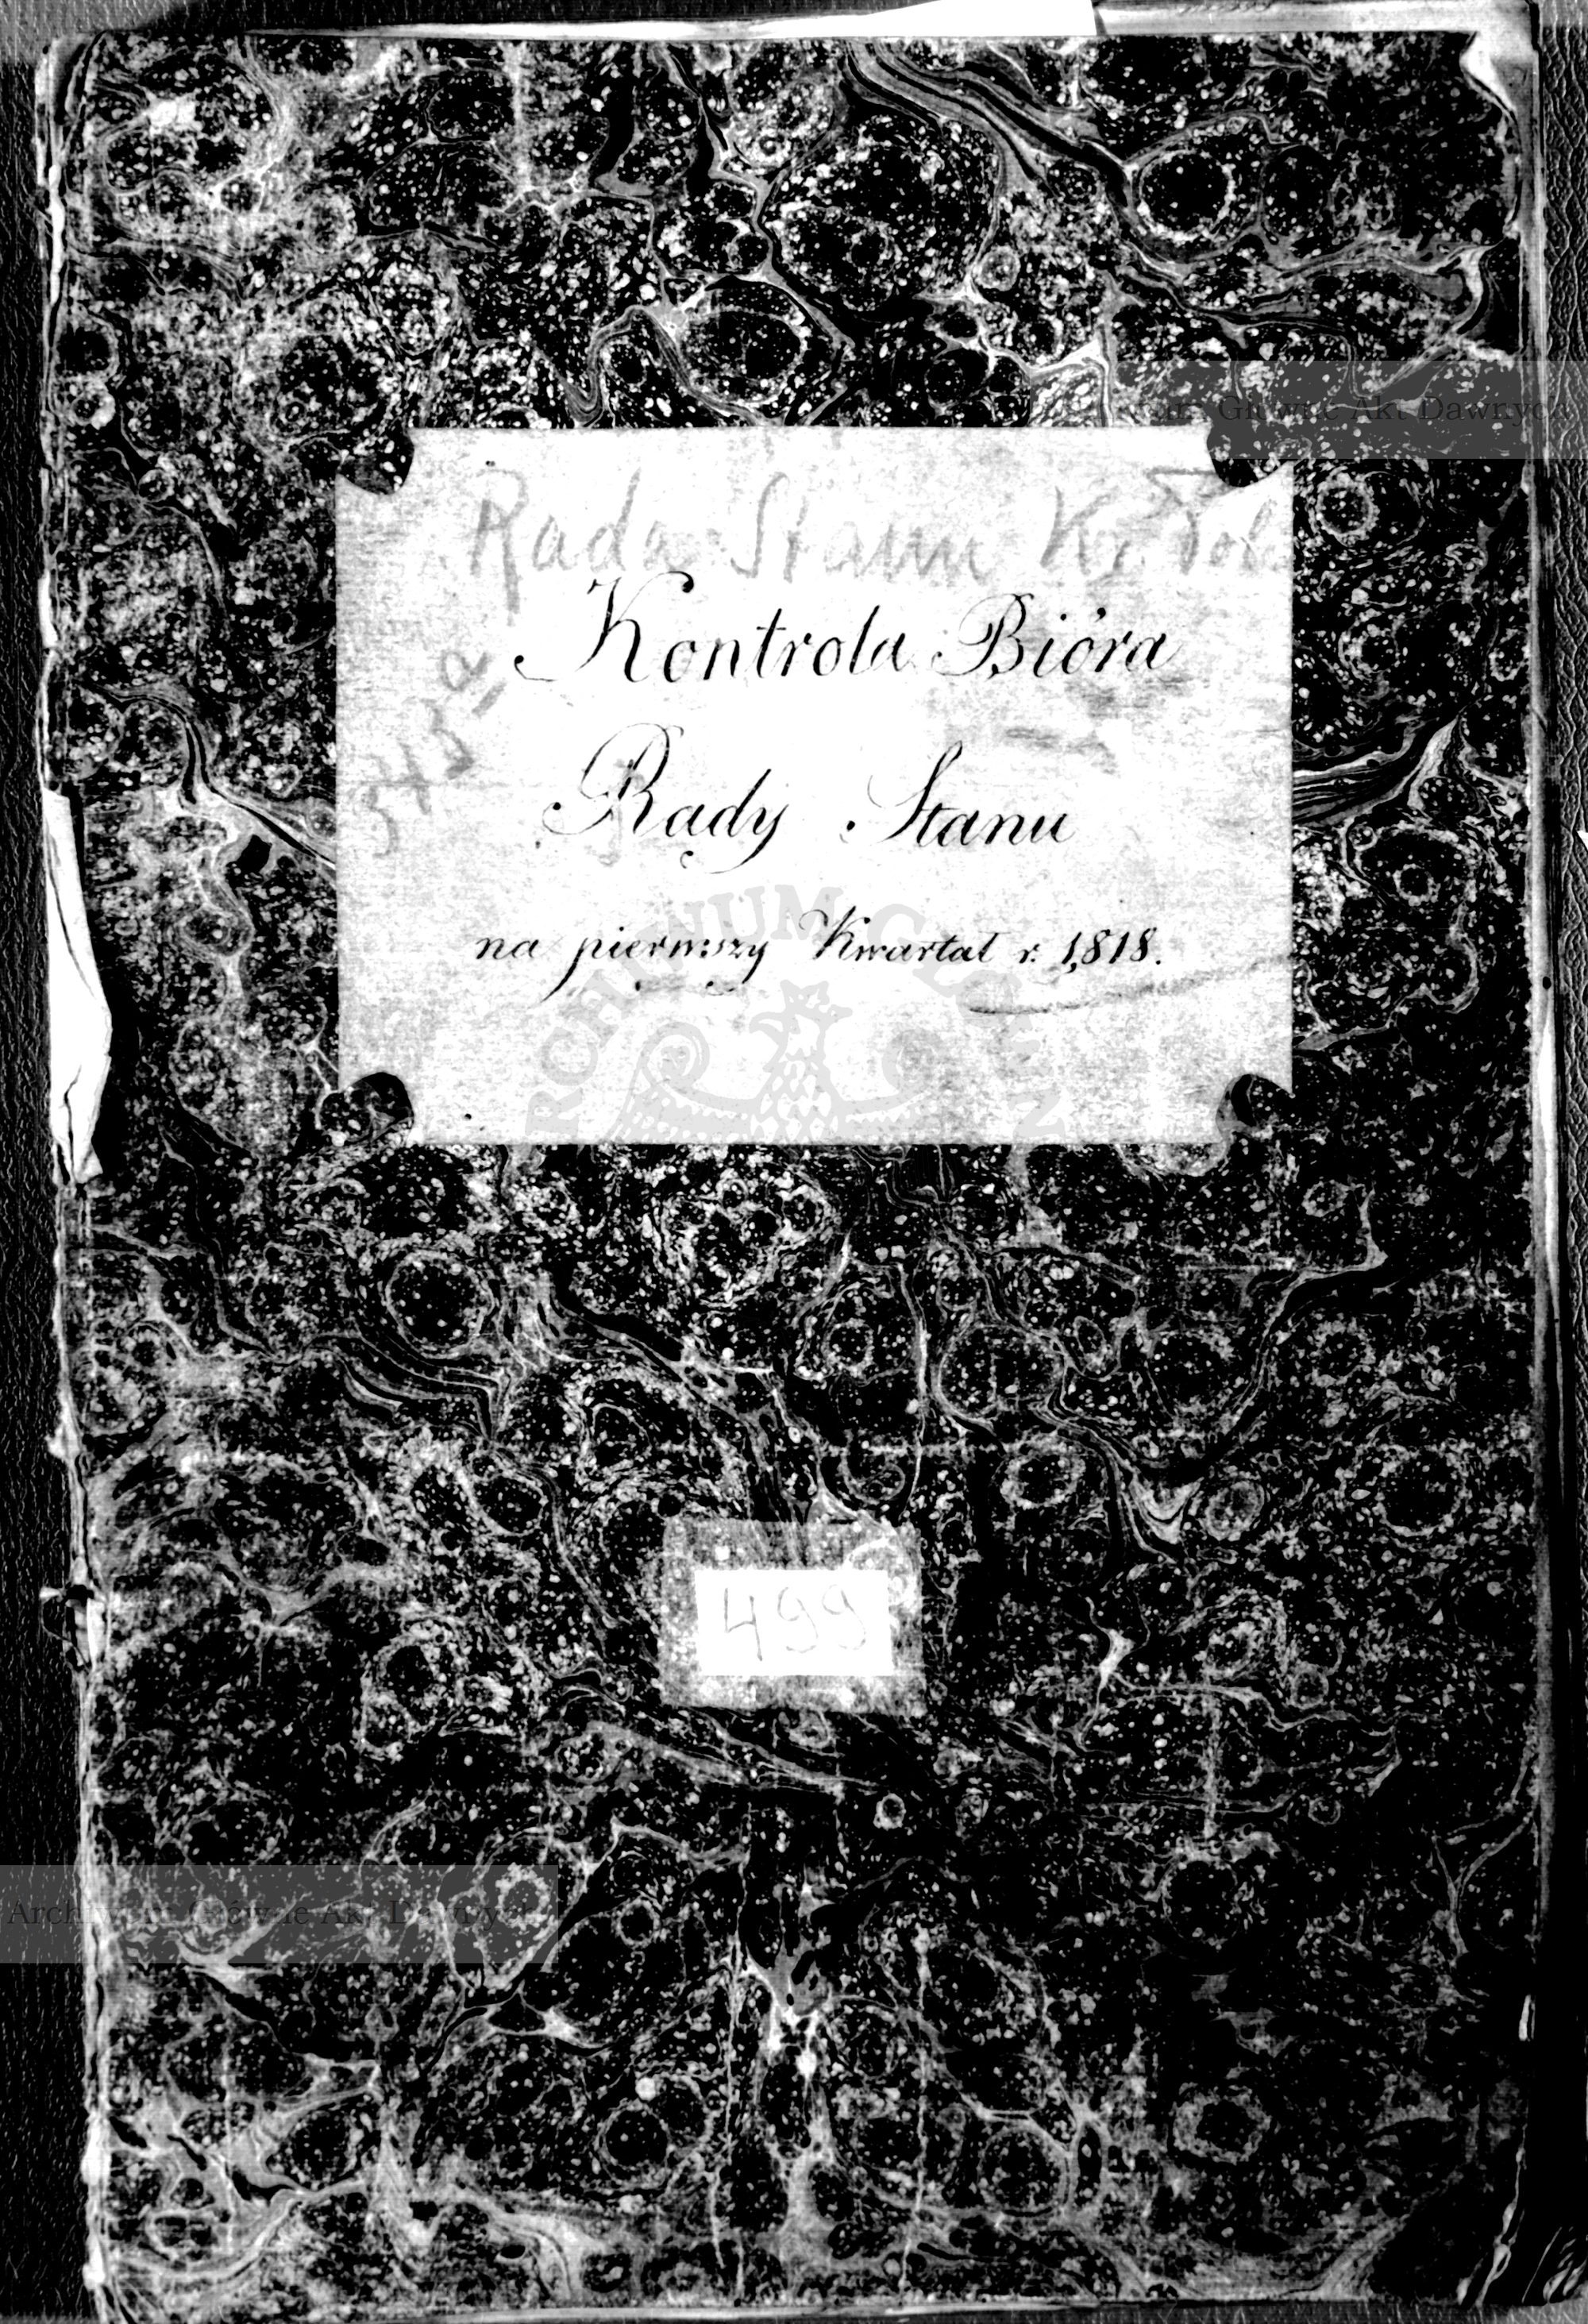 Archiwum Główne Akt Dawnych
Rada Stanu Kr. Pol.
Kontrola Bióra
Rady Stanu
na pierwszy Kwartał r. 1818.
499
Archiwum Główne Akt Dawnych